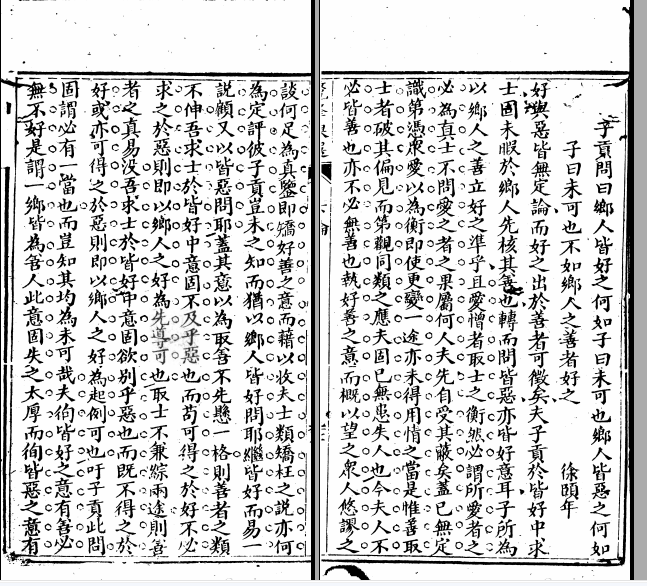 子貢問曰鄉人皆好之何如子曰未可也鄉人皆惡之何如
子曰未可也不如鄉人之善者好之
徐頤年
好與惡皆無定論而好之出於善者可徵矣夫子貢於皆好中求
士固未暇於鄉人先核其善也轉而問皆惡亦皆好意耳子所為
以鄉人之善立好之準乎且愛憎者取士之衡然必謂所愛者之
必為真士不問愛之者之果屬何人夫先自受其蔽矣蓋已無定
識第憑眾愛以為衡即使更變一途亦未得用情之當是惟善取
士者破其偏見而第觀同類之應夫固已無患失人也今夫人不
必皆善也亦不必無善也執好善之意而概以望之眾人悠謬之
談何足為真鹽即矯好善之意而藉以收夫士類矯枉之說亦何
為定評彼子貢豈未之知而猶以鄉人皆好問耶繼皆好而易一
說顧又以皆惡問耶蓋其意以為取善不先懸一格則善者之類
不伸吾求士於皆好中意固不及乎惡也而苟可得之於好不必
求之於惡則即以鄉人之好為先導可也取士不兼綜兩途則善
者之真易没吾求士於皆好中意固欲别乎惡也而既不得之於
好或亦可得之於惡則即以鄉人之好為起例可也吁子貢此問
固謂必有一當也而豈知其均為未可哉夫徇皆好之意有善必
無不好是謂一鄉皆為善人此意固失之太厚而徇皆惡之意有